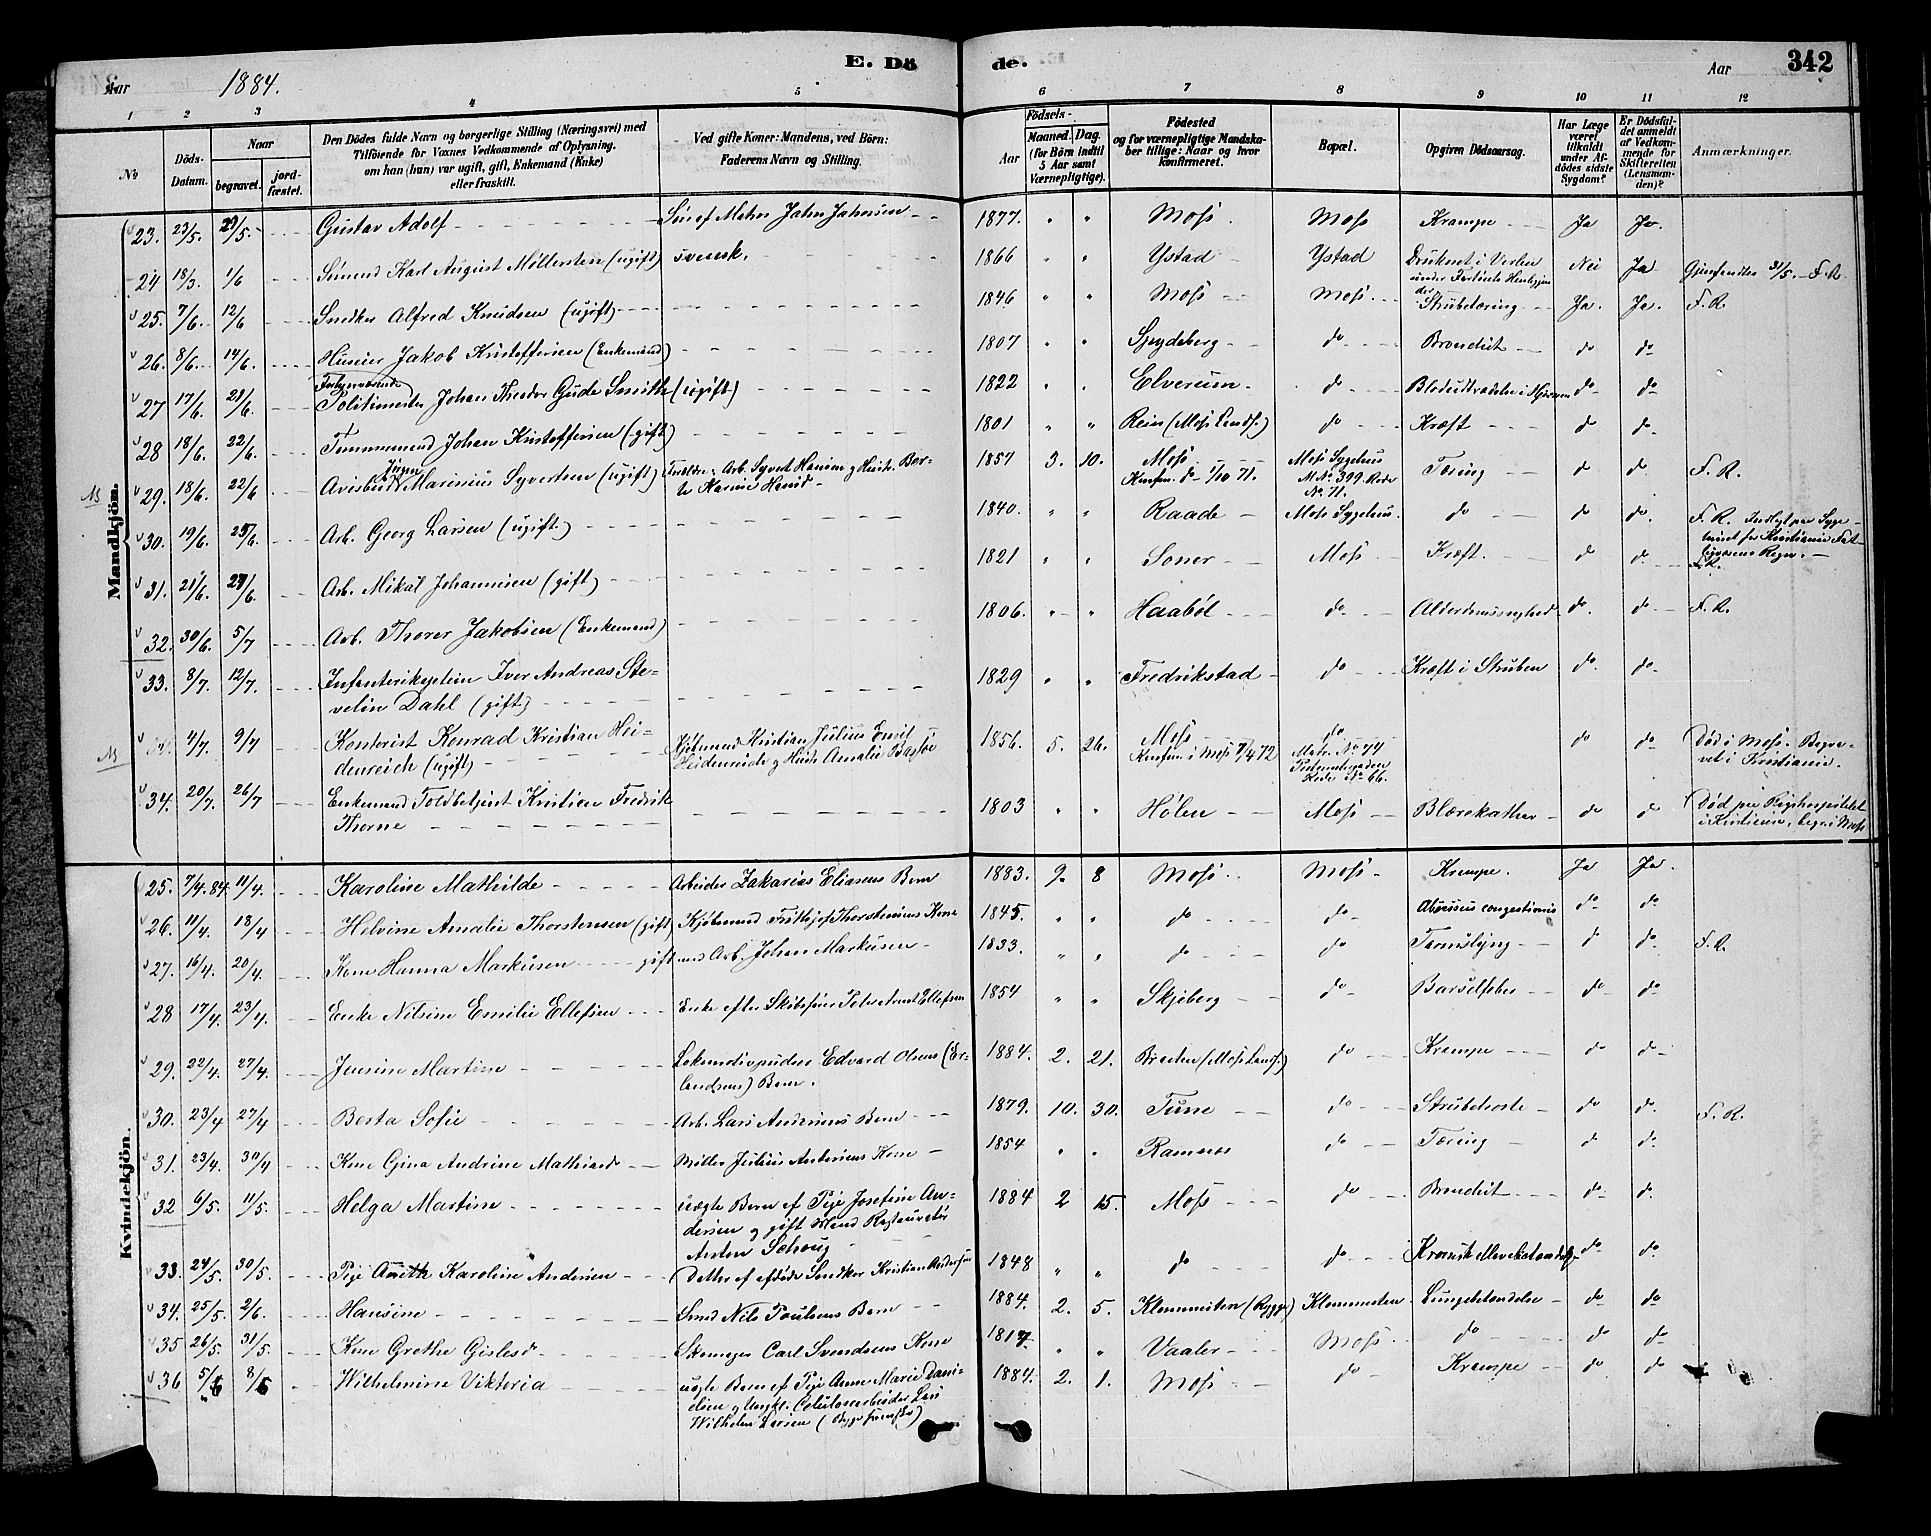 E. Dö de.
342
Aar 1884.
Aar
1 2 3 4 5 6 7 8 9 10 11 12
No
Döds-Datum.
Naar
begravet.
jord-fæstet.
Den Dödes fulde Navn og borgerlige Stilling (Næringsvei) med
Tilföiende for Voxnes Vedkommende af Oplysning,
om han (hun) var ugift, gift, Enkemand (Enke)
eller fraskilt.
Ved gifte Koner: Mandens, ved Börn:
Faderens Navn og Stilling.
Födsels-
Aar
Maaned. Dag.
(for Börn indtil
5 Aar samt
Værnepligtige).
Födested
og for værnepligtige Mandska-
ber tillige: Naar og hvor
konfirmeret.
Bopæl.
Opgiven Dödsaarsag.
Har Læge
været
tilkaldt
under Af-
dödes sidste
Sygdom?
Er Dödsfal-
det anmeldt
af Vedkom-
mende for
Skifteretten
(Lensman-
den)?
Anmærkninger.
Mandkjön.
23. 23/5. 29/5. Gustav Adolf Søn af John Johnsen 1877. " " Moss. Moss Krampe Ja Ja.
24 18/3. 1/6 Sømand Karl August Møllersten (ugift) svensk. 1866 " " Ystad Ystad Druknet i Verlen Nei Ja 31/5. F. R.
25. 7/6. 12/6 Snedker Alfred Knudsen (ugift) 1846 " " Moss Moss Strubetæring Ja. Ja. F. R.
26. 8/6. 14/6. Huseier Jakob Kristoffersen (Enkemand) 1807 " " Spydeberg do Bronchit do do
27 17/6. 21/6. Forhenværende
Politimester Johan Theodor Gude Smith (ugift) 1822 " " Elverum do Blodudtrædelse i Hjernen do do
28 18/6. 22/6. Tømmermand Johan Kristoffersen (gift) 1801 " " Reier (Moss Lands.) do Kræft do do.
29. 18/6. 22/6 Jörgen
Marinius Syvertsen (ugift) Forældre: Arb. Syvert Hansen g Hust. Ber-
te Karine Hansd 1857 3. 10. Moss
Konfm. do 1/10 71. Moss Sygehus
M No. 399. Rode
No. 71. Tæring do do. F. R.
30. 19/6. 25/6. Arb. Georg Larsen (ugift.) 1840. " " Raade Moss Sygehus. do do do. F. R. Indlagt paa Syge-
huset for Kristiania Fat-
tigvæsens Regn.
31. 21/6. 27/6. Arb. Mikal Johannesen (gift) 1821 " " Soner Moss Kræft. do do. F. R.
32. 30/6. 5/7 Arb. Thorer Jakobsen (Enkemand) 1806. " " Haaböl do Alderdomssvaghed do. do. F. R.
33. 8/7. 12/7. Infanterikaptein Iver Andreas Ste-
velin Dahl (gift) 1829 " " Fredrikstad do Kræft i Struben do. do
4/7. 9/7 Kontorist Konrad Kristian Hei-
denreich (ugift) Kjöbmand Kristian Julius Emil
Heidenreich g Hust. Amalie 1856. 5. 26. Moss
Konfm. i Moss 7/4 72 do
Matr. No 74
Rode No. 66. do do Död i Moss. Begra-
vet i Kristiania.
34. 20/7. 26/7 Enkemand Toldbetjent Kristian Fredrik
Thorne 1803 " " Hölen Moss Blærekathar do do Död paa Rigshospitalet
i Kristiania, begr. i Moss
Kvindekjön.
25. 7/4. 84. 11/4. Karoline Mathilde Arbeider Zakarias Eliasens Barn 1883. 9. 8 Moss. Moss Krampe. Ja Ja.
26. 11/4. 18/4 Helvine Amalie Thorstensen (gift) Kjöbmand Frithjof Thorstensens Kone 1845. " " do do Abscessus congestionis do do.
27. 16/4. 20/4. Kone Hanna Markusen gift med Arb. Johan Markusen 1833. " " do do Tarmslyng do do. F. R.
28 17/4. 23/4. Enke Nilsine Emilie Ellefsen Enke efter Skibsförer Peter Ellefsen 1854 " " Skjeberg do Barselfeber do do.
29. 22/4. 27/4. Jensine Martine Lokomotivpudser Edvard Olsens (Er-
landsens) Barn. 1884. 2. 21. (Moss Lands.) do Krampe do do
30. 23/4 27/4 Berta Sofie Arb. Lars Andersens Barn 1879. 10. 30. Tune do Strubehoste do do. F. R.
31. 23/4. 30/4 Kone Gina Andrine Mathiasd. Möller Julius Andersens Kone 1854 " " Ramnes do Tæring do do.
32 6/5. 11/5. Helga Martine uægte Barn af Pige Josefine An-
dersen g gift Mand Restauratör
Anton Schoug 1884 2 15. Moss do Bronchit do do.
33. 24/5. 30/5. Pige Anette Karoline Andersen Datter af afdöde Snedker Kristian Andersen 1848 " " do do Kronisk do do.
34. 25/5. 2/6. Hansine Smed Nils Poulsens Barn 1884. 2. 5. Klommesten (Rygge) Klommesten Lungebetændelse do do
35 26/5. 31/5. Kone Grethe Gislesd. Skomager Carl Svendsens Kone 1817. " " Vaaler Moss do do do
36 5/6 8/6 Wilhelmine Viktoria uægte Barn af Pige Anne Marie Dani-
elsen g Ungk. Celulosearbeider Lars
Wilhelm Larsen 1884. 2. 1. Moss do Krampe do do